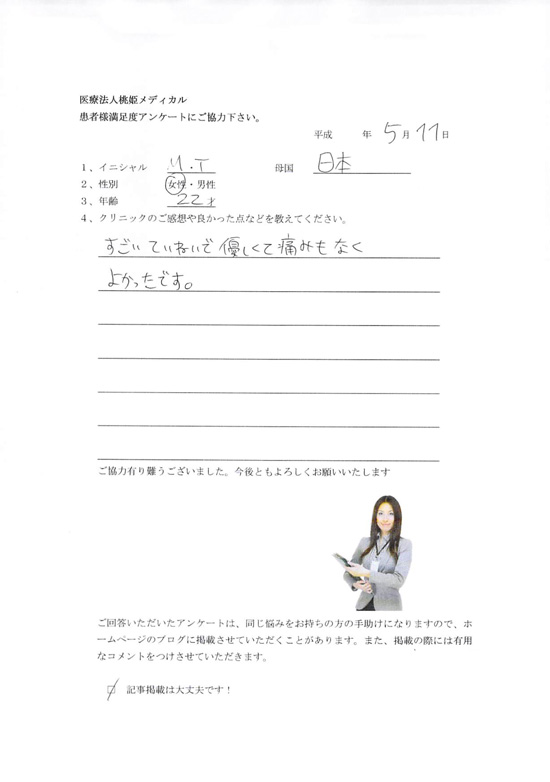 医療法人桃姫メディカル
患者様満足度アンケートにご協力下さい。
平成 年 5月 11日
1、イニシャル M.T 母国 日本
2、性別 女性・男性
3、年齢 22才
4、クリニックのご感想や良かった点などを教えてください。
すごいていねいで優しくて痛みもなく
よかったです。
ご協力有り難うございました。今後ともよろしくお願いいたします
ご回答いただいたアンケートは、同じ悩みをお持ちの方の手助けになりますので、ホ
ームページのブログに掲載させていただくことがあります。また、掲載の際には有用
なコメントをつけさせていただきます。
☑ 記事掲載は大丈夫です！